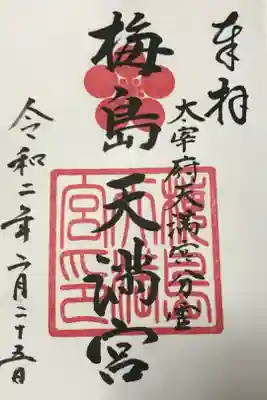 奉拝
太宰府天満宮分霊
梅島天満宮
令和二年六月二十五日
梅島
天満
宮印